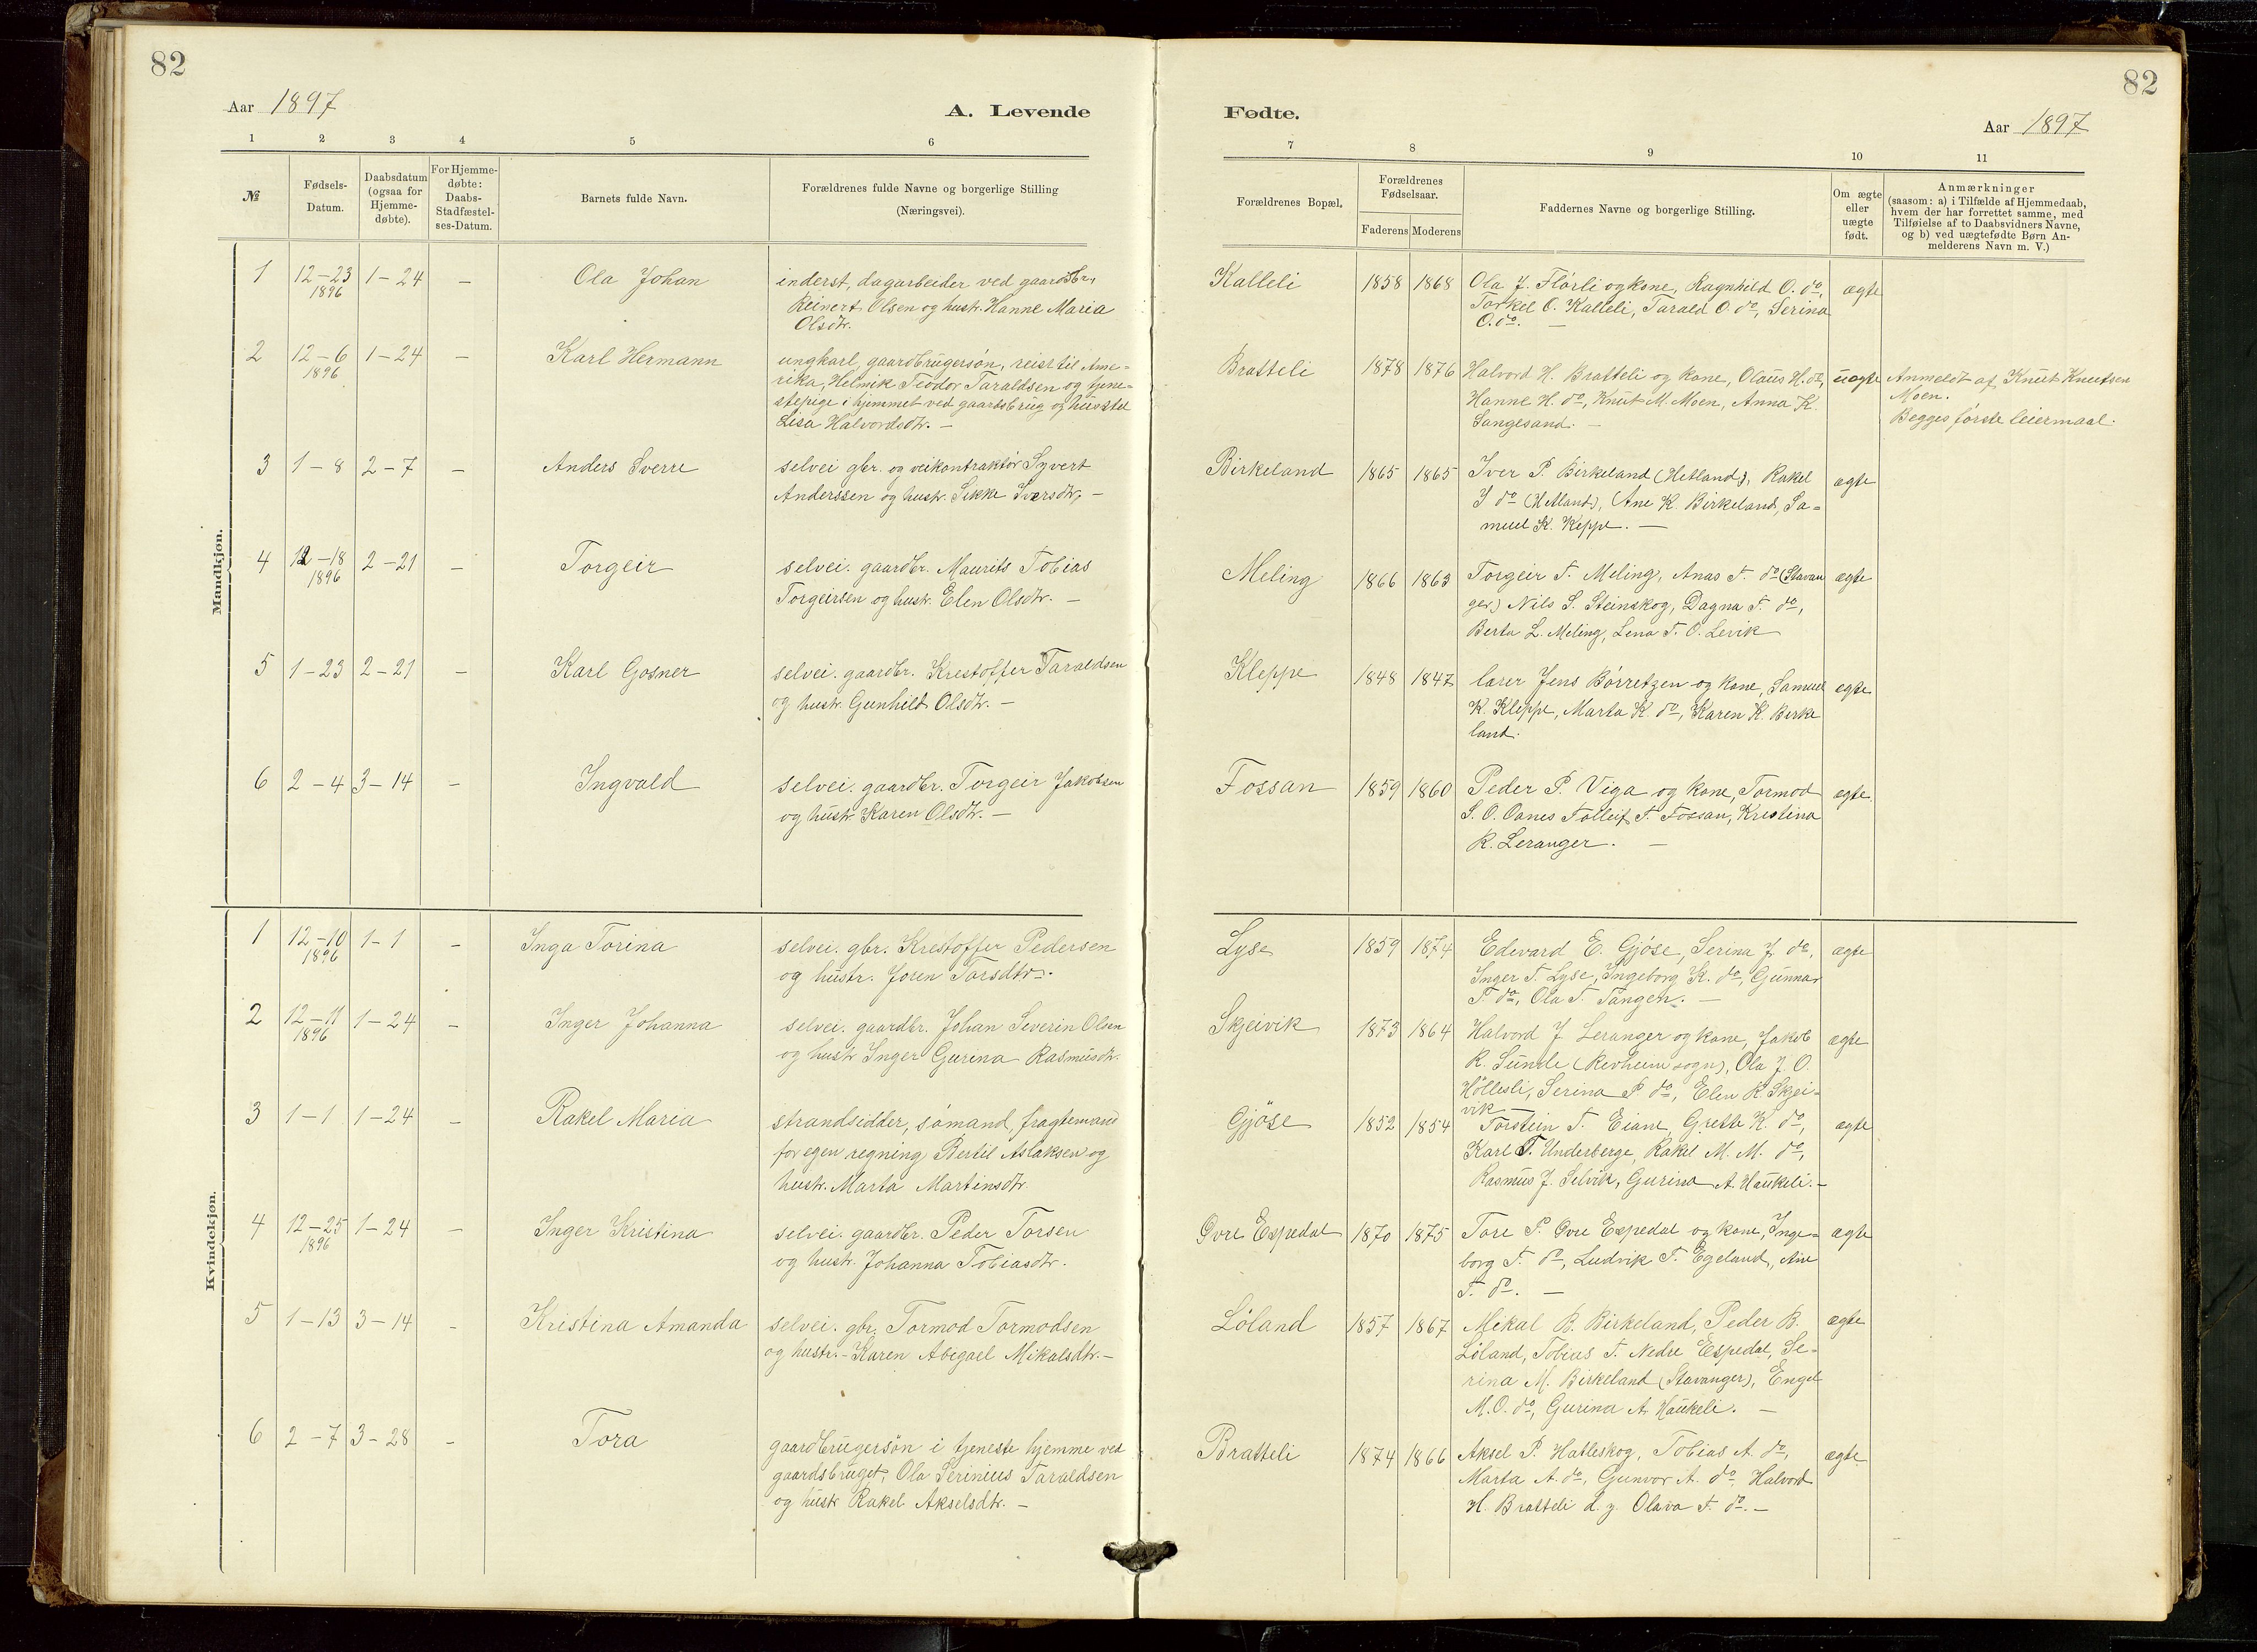 82
Aar 1897
A. Levende
1 2 3 4 5 6
№
Fødsels-
Datum.
Daabsdatum
(ogsaa for
Hjemme-
døbte).
For Hjemme-
døbte:
Daabs-
Stadfæstel-
ses-Datum.
Barnets fulde Navn.
Forældrenes fulde Navne og borgerlige Stilling
(Næringsvei).
Mandkjøn.
1 12-23 1-24 - Ola Johan inderst, dagarbeider ved gaardsbr.,
1896 Reinert Olsen og hustr. Hanne Maria
Olsdtr.
2 12-6 1-24 - Karl Hermann ungkarl, gaardbrugersøn, reist til Ame-
1896 rika, Helmik Teodor Taraldsen og tjene-
stepige i hjemmet ved gaardsbrug og husstel
Lisa Halvordsdtr. -
3 1-8 2-7 - Anders Sverre selvei gbr. og veikontraktör Syvert
Anderssen og hustr. Sikke Iversdtr. -
4 12-18 2-21 - Torgeir selvei. gaardbr. Maurits Tobias
1896 Torgeirsen og hustr. Elen Olsdtr. -
5 1-23 2-21 - Karl Gosner selvei. gaardbr. Krestoffer Taraldsen
og hustr. Gunhild Olsdtr. -
6 2-4 3-14 - Ingvald selvei. gaardbr. Torgeir Jakobsen
og hustr. Karen Olsdtr. -
Kvindekjøn.
1 12-10 1-1 - Inga Torina selvei. gbr. Krestoffer Pedersen
1896 og hustr. Joren Torsdtr.
2 12-11 1-24 - Inger Johanna selvei. gaardbr. Johan Severin Olsen
1896 og hustr Inger Gurina Rasmusdtr.
3 1-1 1-24 - Rakel Maria strandsidder, sømand, fragtemand
for egen regning Bertil Aslaksen og
hustr. Marta Martinsdtr.
4 12-25 1-24 - Inger Kristina selvei. gaardbr. Peder Torsen
1896 og hustr. Johanna Tobiasdtr.
5 1-13 3-14 - Kristina Amanda selvei. gbr. Tormod Tormodsen
og hustr. - Karen Abegael Mikalsdtr. -
6 2-7 3-28 - Tora gaardbrugersön i tjeneste hjemme ved
gaardsbruget, Ola Serinius Taraldsen
og hustr Rakel Akselsdtr. -
82
Fødte.
Aar 1897
7 8 9 10 11
Forældrenes Bopæl.
Forældrenes
Fødselsaar.
Faderens Moderens
Faddernes Navne og borgerlige Stilling.
Om ægte
eller
uægte
født.
Anmærkninger
(saasom: a) i Tilfælde af Hjemmedaab,
hvem der har forrettet samme, med
Tilføielse af to Daabsvidners Navne,
og b) ved uægtefødte Børn An-
melderens Navn m. V.)
Kalleli 1858 1868 Ola J. Flörli og kone, Ragnhild O. do, ægte
Torkel O. Kalleli, Tarald O. do, Serina
O. do. -
Bratteli 1878 1876 Halvord H. Bratteli og kone, Olaus H. do, uægte Anmeldt af Knut Knutsen
Hanne H. do, Knut M. Moen, Anna K. Moen.
Sangesand. - Begges første leiermaal.
Birkeland 1865 1865 Iver P. Birkeland (Hetland), Rakel ægte
I do (Hetland), Ane K. Birkeland, Sa-
muel K. Kleppe. -
Meling 1866 1863 Torgeir T. Meling, Anas T. do (Stavan ægte
ger) Nils S. Steinskog, Dagna T. do,
Berta L. Meling, Lena T. O. Levik
Kleppe 1848 1847 lærer Jens Börretzen og kone, Samuel ægte
K. Kleppe, Marta K. do, Karen K. Birke
land.
Fossan 1859 1860 Peder P. Viga og kone, Tormod ægte
S. O. Oanes Tolleif T. Fossan, Kristina
R. Leranger. -
Lyse 1859 1874 Edevard E. Gjöse, Serina J do, ægte
Inger T. Lyse, Ingeborg K. do, Gunnar
P. do, Ola T. Tangen. -
Skjeivik 1873 1864 Halvord J. Leranger og kone, Jakob ægte
R. Sunde (Revheim sogn), Ola J. O.
Höllesli, Serina P. do, Elen R. Skjei-
vik -
Gjöse 1852 1854 Torstein T. Eiane, Grette K. do, ægte
Karl T. Underberge, Rakel M. M. do,
Rasmus J. Selvik, Gurina A. Haukeli. -
Øvre Espedal 1870 1875 Tore P. Øvre Espedal og kone, Inge- ægte
borg T. do, Ludvik T. Egeland, Ane
T. do. -
Löland 1857 1867 Mekal B. Birkeland, Peder B. ægte
Löland, Tobias T. Nedre Espedal, Se-
rina M. Birkeland (Stavanger), Engel
M. O. do, Gurina A. Haukeli. -
Bratteli 1874 1866 Aksel P. Hatleskog, Tobias A. do, ægte
Marta A. do, Gunvor A. do, Halvord
H. Bratteli d. y. Olava T. do. -